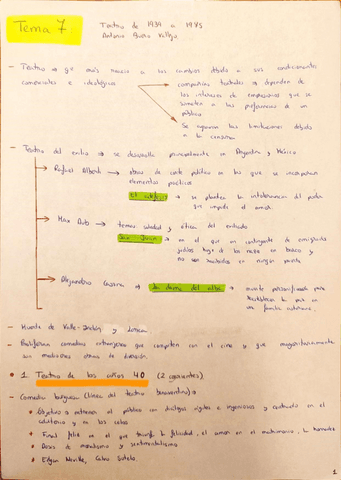 Tema 7:
Teatro de 1939 a 1985
Antonio Buero Vallejo
- Teatro → que más reacio a los cambios debido a sus condicionantes
comerciales e ideológicos
→ compañías teatrales → dependen de
los intereses de empresarios que se
someten a las preferencias de un
público
→ Se agravan las limitaciones debido
a la censura
- Teatro del exilio → se desarrolla principalmente en Argentina y México
→ Rafael Alberti → obras de corte político en las que se incorporan
elementos poéticos
El adefesio → se plantea la intolerancia del poder
que impide el amor.
→ Max Aub → temas: soledad y ética del exiliado
San Juan → en el que un contingente de emigrados
judíos huye de los nazis en barco y
no son recibidos en ningún puerto
→ Alejandro Casona → La dama del alba → muerte personificada para
restablecer la paz en
una familia asturiana.
- Muerte de Valle-Inclán y Lorca
- Proliferan comedias extranjeras que compiten con el cine y que mayoritariamente
son mediocres obras de diversión.
• 1. Teatro de los años 40 (2 corrientes)
- Comedia burguesa (línea del teatro benaventino) →
• Objetivo → entretener al público con diálogos ágiles e ingeniosos y centrado en el
cotidiano y en los celos
• Final feliz en el que triunfa la felicidad, el amor en el matrimonio, la honradez
• Dosis de moralismo y sentimentalismo
• Edgar Neville, Calvo Sotelo.
1